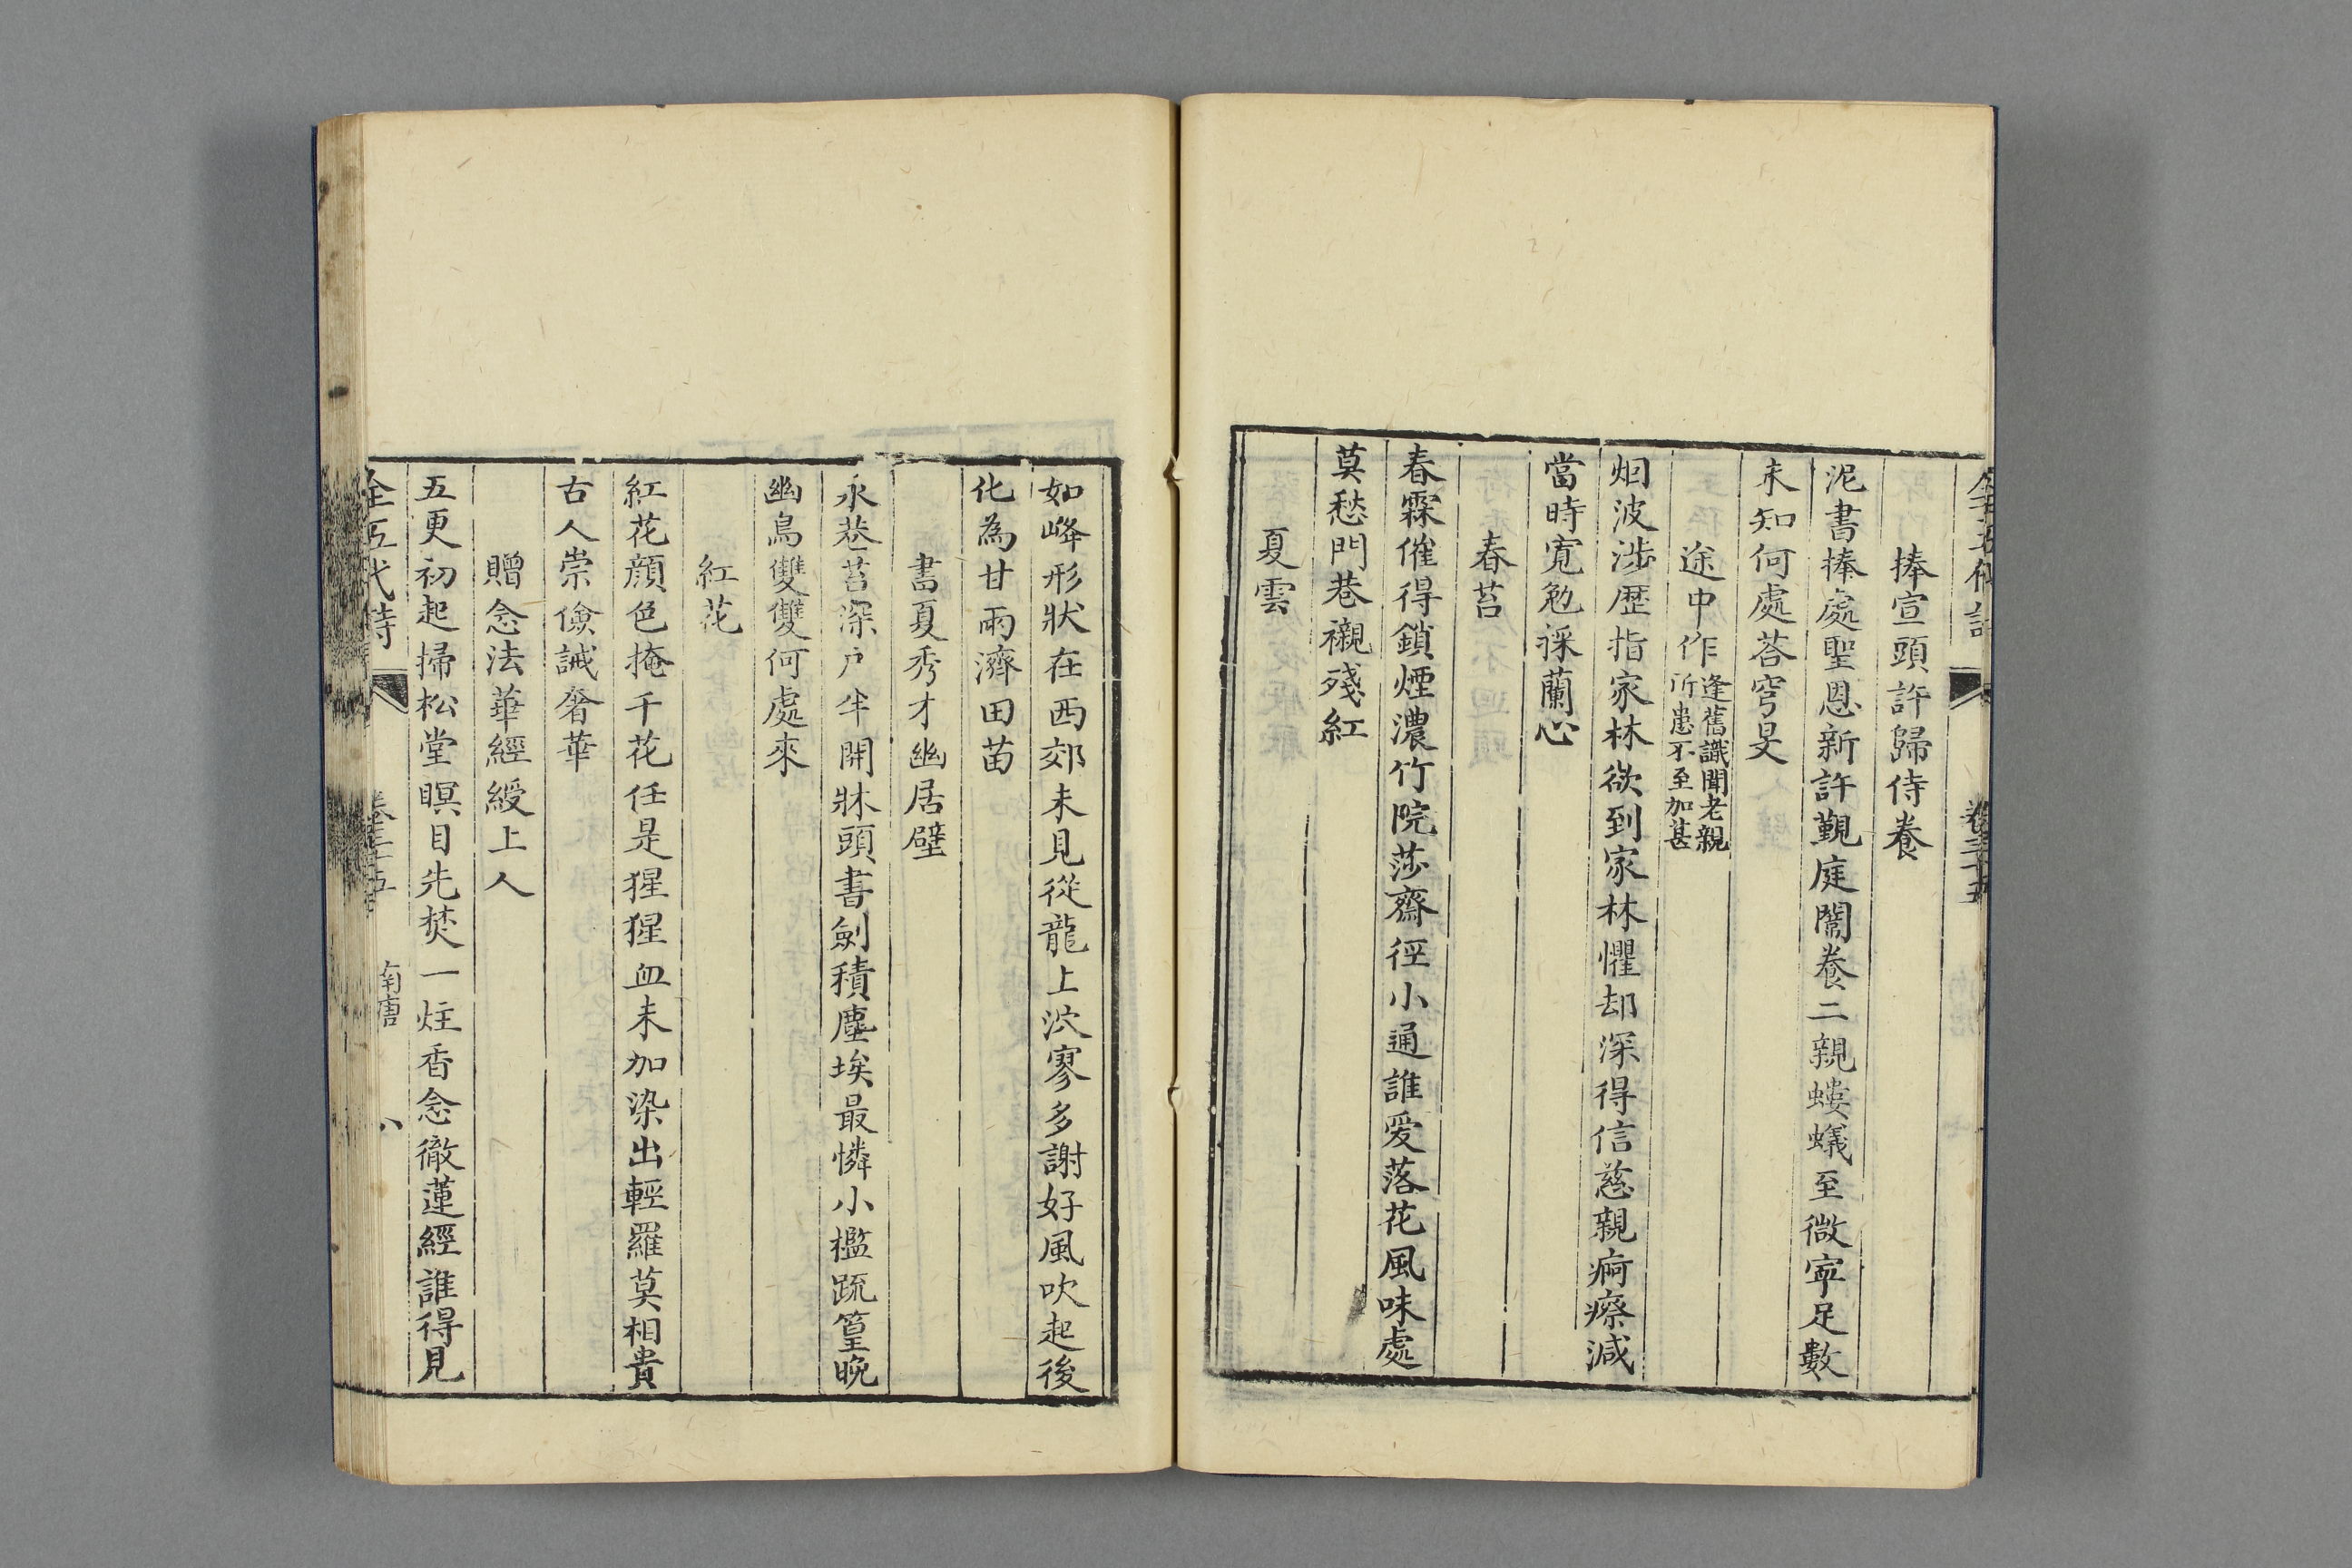 捧宣頭許歸侍養
泥書捧處聖恩新許覲庭闈養二親螻蟻至微寧足數
未知何處荅穹旻
途中作逢舊識聞老親所患不至加甚
烟波涉歷指家林欲到家林懼却深得信慈親痾瘵減
當時寬勉採蘭心
春苔
春霖催得鎖煙濃竹院莎齋徑小通誰爱落花風味處
莫愁門巷襯殘紅
夏雲
如峰形狀在西郊未見從龍上泬寥多謝好風吹起後
化為甘雨濟田苗
書夏秀才幽居壁
永巷苔深户半開牀頭書劍積塵埃最憐小檻疏篁晚
幽鳥雙雙何處來
紅花
紅花顔色掩千花任是猩猩血未加染出輕羅莫相貴
古人崇儉誡奢華
贈念法華經綬上人
五更初起掃松堂瞑目先焚一炷香念徹蓮經誰得見
全五代詩 卷三十五 南唐 八